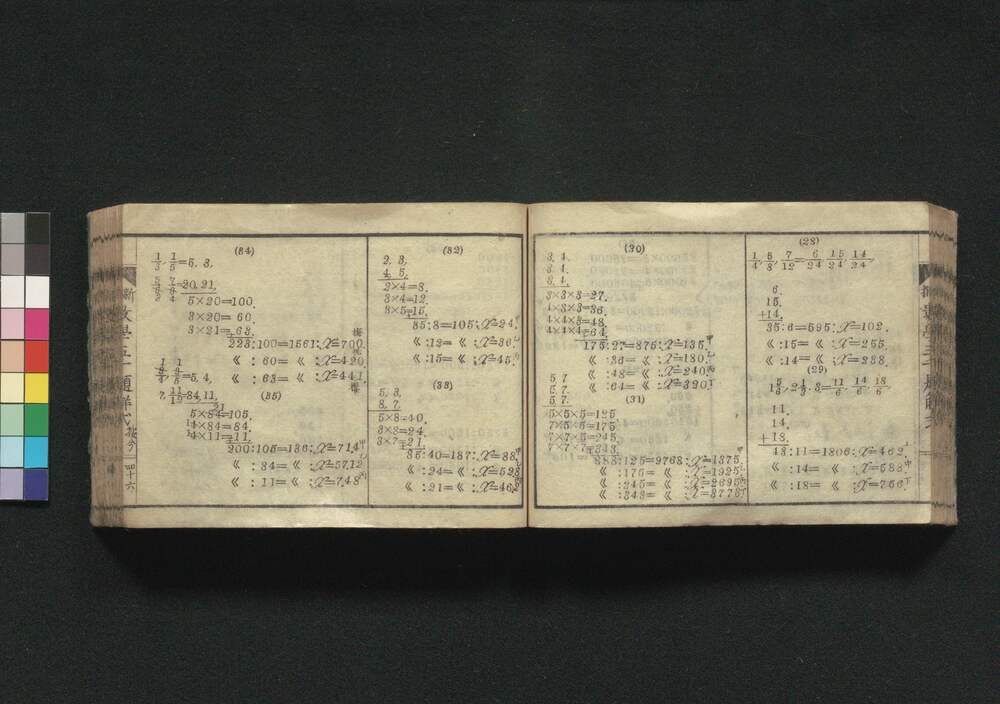 (28)
1/4, 5/8, 7/12 = 6/24 15/24 14/24.
6.
15.
+14.
35:6=595:X=102.
《 :15= 《 :X=255.
《 :14= 《 :X=238.
(29)
1 5/6, 2 1/3, 3= 11/6, 14/6, 18/6
11.
14.
+18.
43:11=1806:X=462.
《 :14= 《 :X=588.
《 :18= 《 :X=756.
(30)
3, 4,
3, 4.
3, 4.
3×3×3=27.
4×3×3=36.
4×4×3=48.
4×4×4=64.
175:27=875:X=135.
《 :36= 《 :X=180.
《 :48= 《 :X=240.
《 :64= 《 :X=320
(31)
5, 7
5, 7.
5, 7.
5×5×5=125
7×5×5=175
7×7×5=245.
7×7×7=343.
888:125=9768:X=1375.
《 :175= 《 :X=1925
《 :245= 《 :X=2695
《 :343= 《 :X=3773
(32)
2, 3,
4, 5.
2×4=8.
3×4=12.
3×5=15.
35:8=105:X=24.
《 :12= 《 :X=36.
《 :15= 《 :X=45.
(33)
5, 3,
8, 7.
5×8=40.
3×8=24.
3×7=21.
85:40=187:X=88.
《 :24= 《 :X=528
《 :21= 《 :X=462
(34)
1/3, 1/5 =5, 3,
20, 21,
5×20=100.
3×20= 60.
3×21= 63.
223:100=1561:X=700.
《 : 60= 《 :X=420.
《 : 63= 《 :X=441
(35)
=5, 4,
7, 11/15=84, 11,
5×84=105.
1/4×84=84.
1/4×11=11.
200:105=136:X=71.4
《 : 84= 《 :X=57.12
《 : 11= 《 :X=7.48
四十六